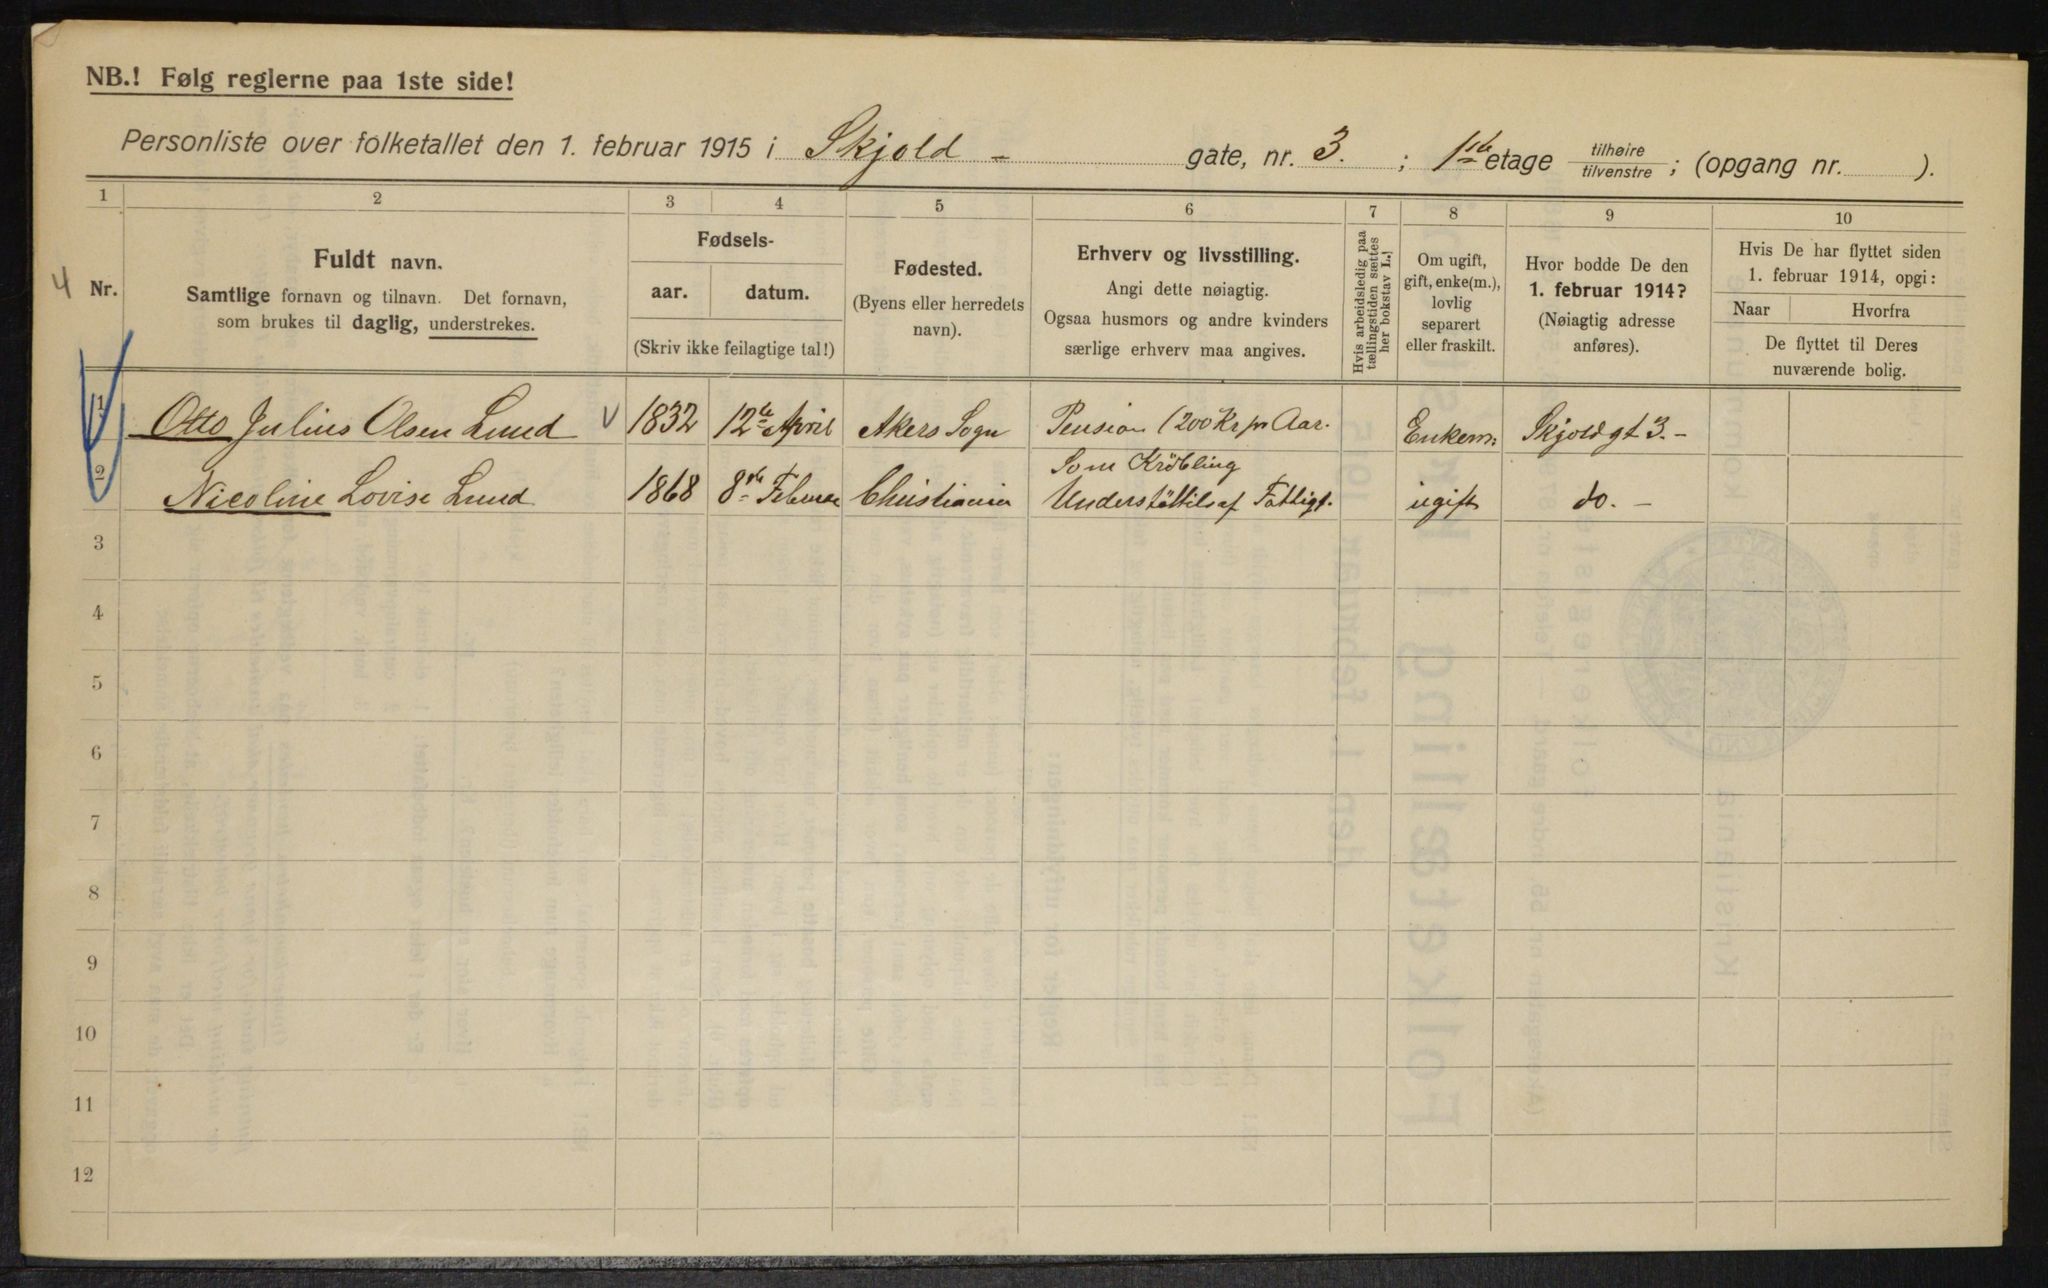 NB.! Følg reglerne paa 1ste side!
Personliste over folketallet den 1. februar 1915 i Skjold - gate, nr. 3. ; 1ste etage tilhøire / tilvenstre ; (opgang nr. ).
1 2 3 4 5 6 7 8 9 10
4
Nr.
Fuldt navn.
Samtlige fornavn og tilnavn. Det fornavn,
som brukes til daglig, understrekes.
Fødsels-
aar. datum.
(Skriv ikke feilagtige tal!)
Fødested.
(Byens eller herredets
navn).
Erhverv og livsstilling.
Angi dette nøiagtig.
Ogsaa husmors og andre kvinders
særlige erhverv maa angives.
Hvis arbeidsledig paa
tællingstiden sættes
her bokstav L.]
Om ugift,
gift, enke(m.),
lovlig
separert
eller fraskilt.
Hvor bodde De den
1. februar 1914?
(Nøiagtig adresse
anføres).
Hvis De har flyttet siden
1. februar 1914, opgi:
Naar Hvorfra
De flyttet til Deres
nuværende bolig.
1 Otto Julius Olsen Lund 1832 12te April Akers Sogn Pension 1200 Kr pr Aar. Enkem: Skjoldgt 3. -
2 Nicoline Lovise Lund 1868 8de Februar Christiania Som Kröbling
Understöttils af Fattigv. ugift do. -
3
4
5
6
7
8
9
10
11
12